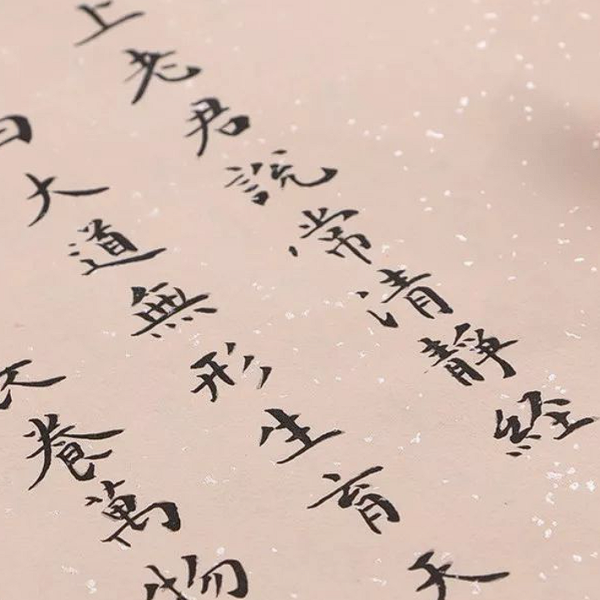 上老君說常清靜経
曰大道無形生育天
養萬物